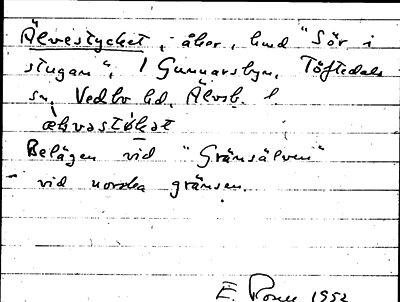 Älvestycket, åker, hmd "Sör i
stugan", 1 Gunnarsbyn, Töftedals
sn, Vedbo hd, Älvsb. l.
Belägen vid "Gränsälven"
vid norska gränsen.
E. 1952